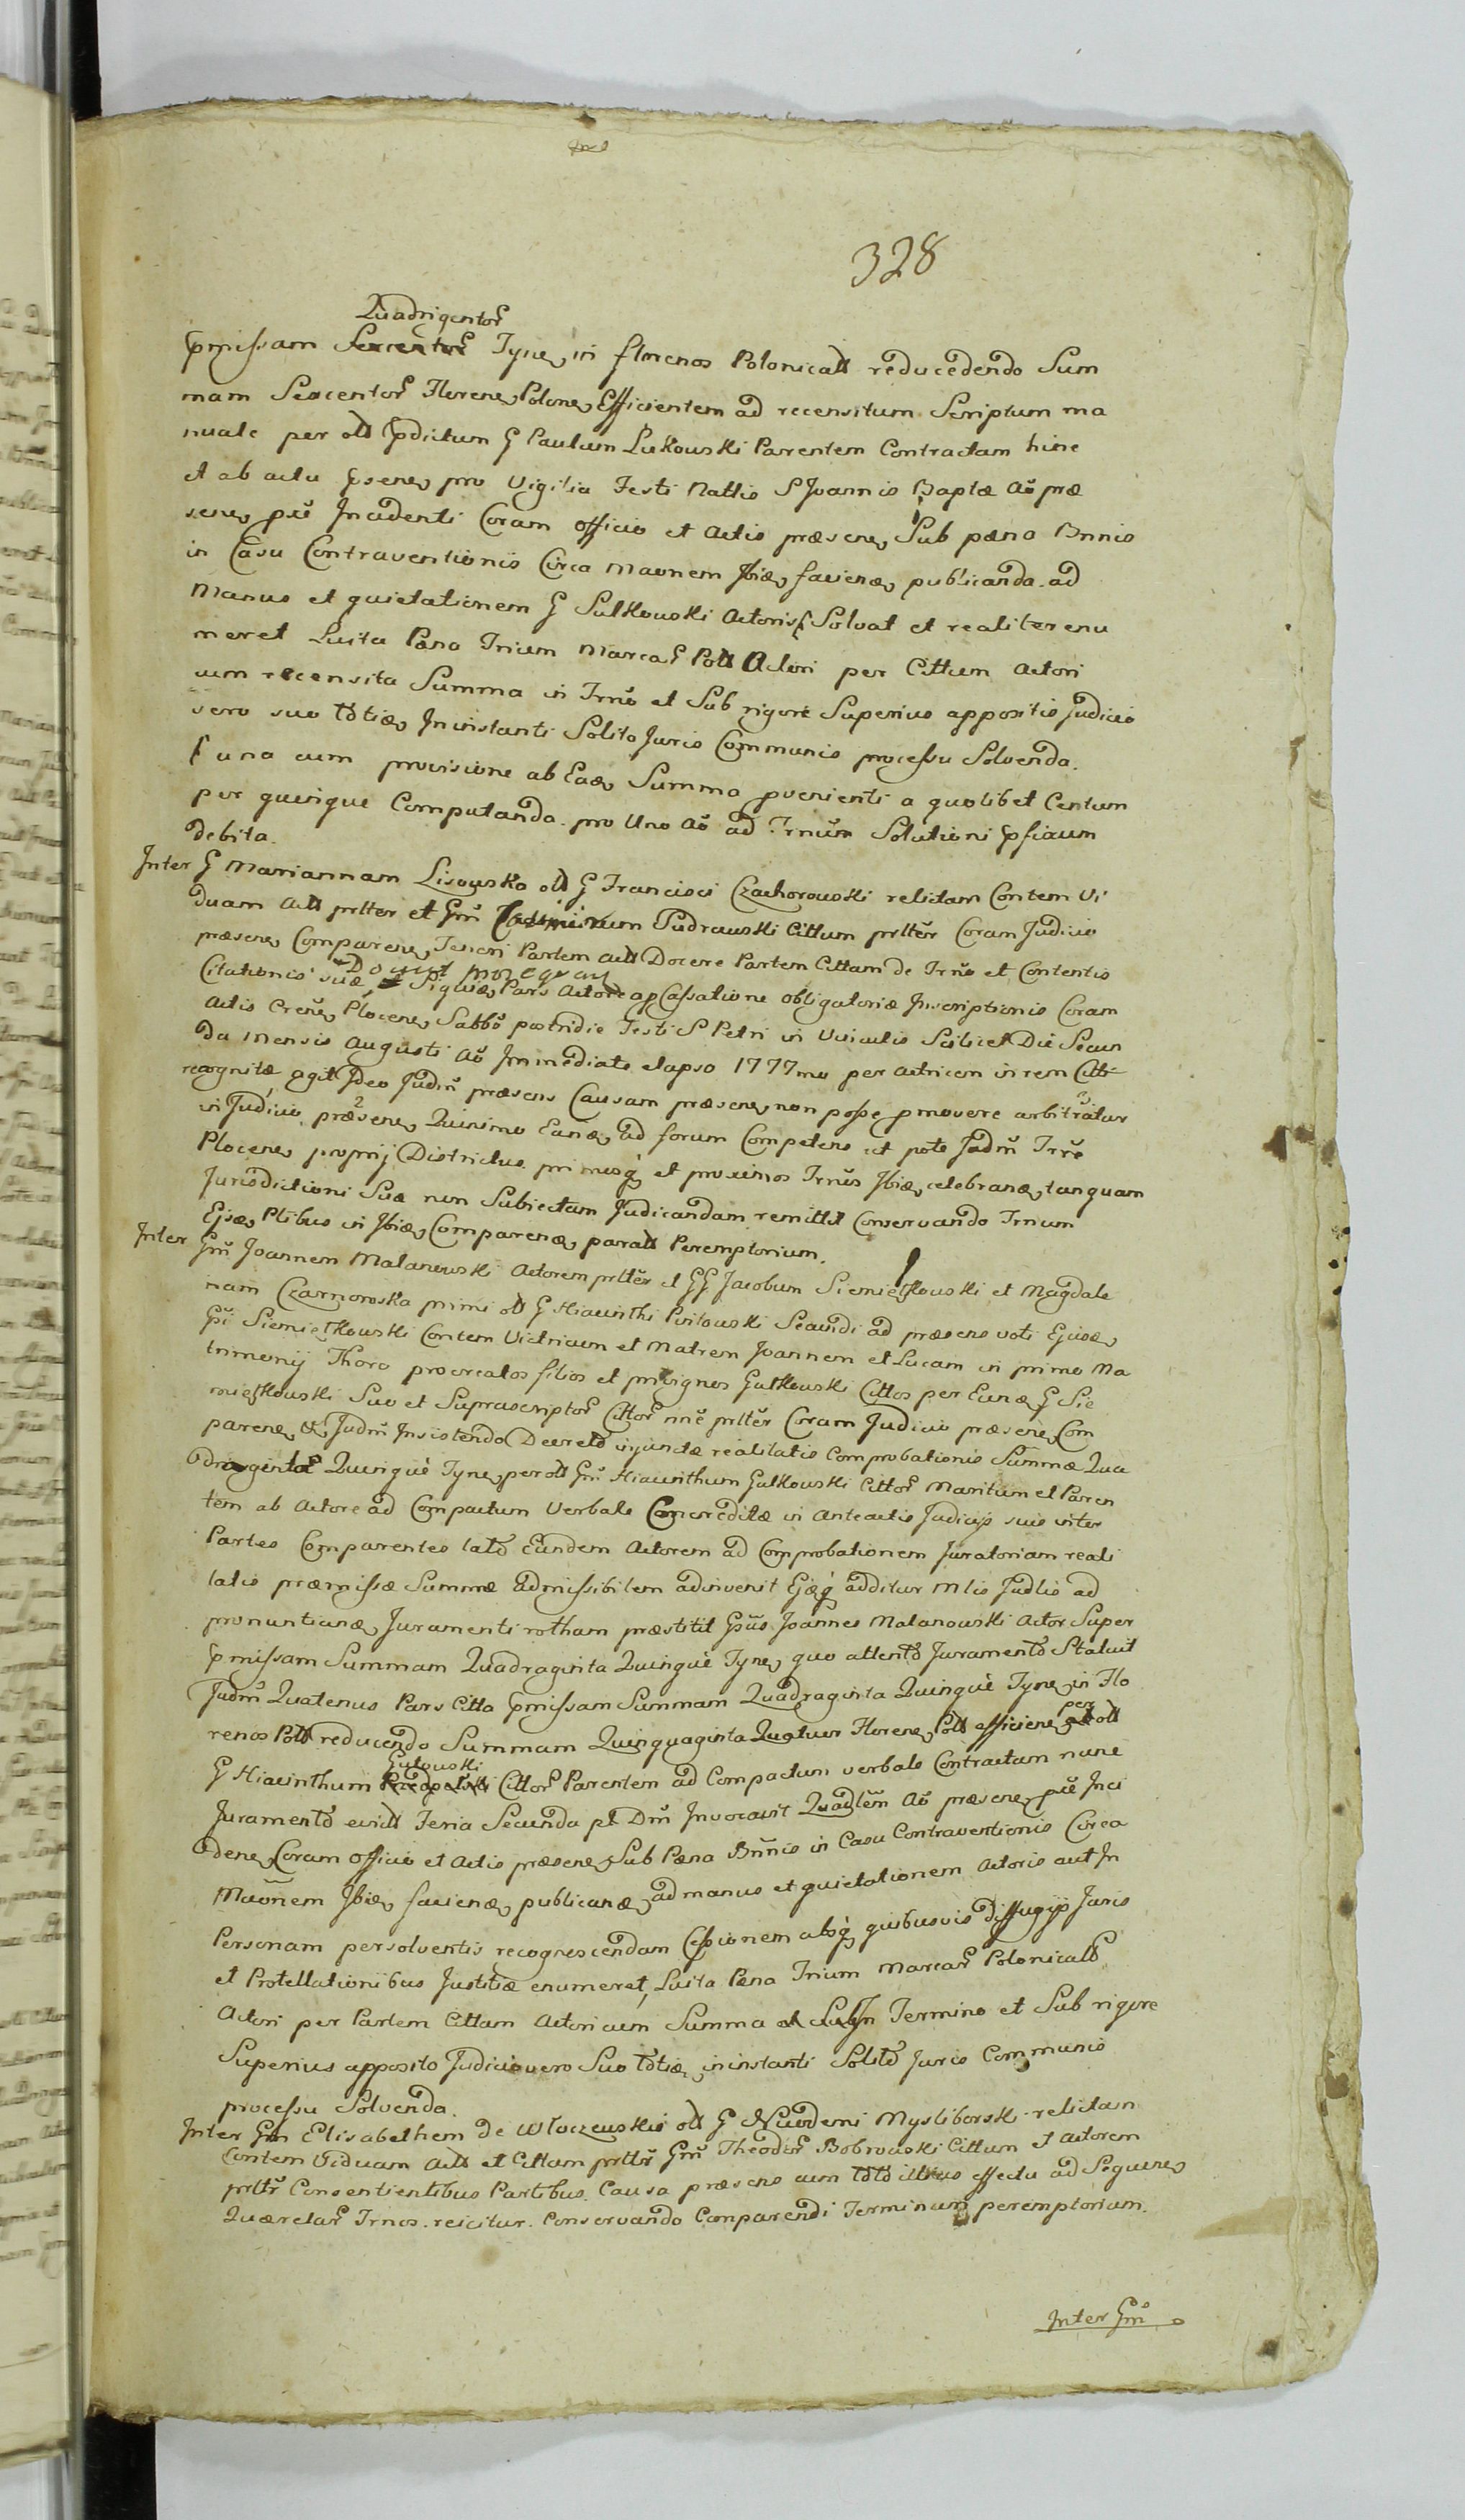 328
Quadrigentor
pmissam Sexcentor Tyne, in florenos Polonicall reducedendo Sum
mam Sexcentor Florene, Polone, Efficientem ad recensitum Scriptum ma
nuale per oll pdictum G Paulum Lukowski Parentem Contractam hinc
et ab actu psene, pro Vigilia Festi Natlis S Joannis Baptæ Ao præ
sene, pu Incidenti Coram officio et Actis præsene, Sub pæna Bnnis
in Casu Contraventionis Circa Maonem Jbiæ, faciene, publicanda ad
Manus et quietationem G Sulkowski Actoris Solvat et realiter enu
meret Luita Pæna Trium Marcar Poll Actori per Cittum Actori
cum recensita Summa in Trno et Sub rigore Superius appositis Judicio
vero suo tdtiæ, Ininstanti Solito Juris Communis processu Solvenda.
una cum provisione ab Eadæ, Summa pvenienti a quolibet Centum
per quinque Computanda pro Uno Ao ad Trnum Solutioni pfixum
debita.
Inter G Mariannam Lisowska oll G Francisci Czachorowski relictam Contem Vi
duam Acll prltter et Gm Casimirum Sudrawski Cittum prltter Coram Judicio
præsene, Comparene, Teneri Partem Acll Docere Partem Cittam de Trno et Contentis
Citationis suæ, Siquidæ, Pars Actorea Cassatione obligatoriæ Inscriptionis Coram
Actis Crene, Plocene, Sabbo postridie Festi S Petri in Vinculis Scilicet Die Secun
da Mensis Augusti Ao Immediate elapso 1777mo per Actricem in rem Citti
recognitæ agit Ideo Judm præsens Causam præsene, non posse pmovere arbitratur
in Judicio præsene, Quinimo Eandæ, ad forum Competens ut pote Judm Trre
Plocene, proprij Districtus primosq et proximos Trnos Jbiæ, celebrane, tanquam
Jurisdictioni Suæ non Subiectam Judicandam remittit Conservando Trnum
Ejsdæ, Ptibus in Jbiæ, Comparene, parall Peremptorium.
Inter Gm Joannem Malanowski Actorem prltter et GG Jacobum Siemiętkowski et Magdale
nam Czarnowska primi oll G Hiacinthi Gutkowski Secundi ad præsens voti Ejusdæ,
Gi Siemiętkowski Contem Victricum et Matrem Joannem et Lucam in primo Ma
trimonij Thoro procreatos filios et privignos Gutkowski Cittos per Eundæ, G Sie
miętkowski Suo et Suprascriptor Cittor nne prltter Coram Judicio præsene, Com
parene, Judm Insistendo Decreto injunctæ realitatis comprobationis Summæ Qua
draginta Quinque Tyne, per oll Gm Hiacinthum Gutkowski Cittor Maritum et Paren
tem ab Actore ad Compactum Verbale Concreditæ in Anteactis Judicijs suis inter
Partes Comparentes lato Eundem Actorem ad Comprobationem Juratoriam reali
tatis præmissæ Summæ admissibilem adinvenit Ejdæq additur Mlis Judlis ad
pronuntiane, Juramenti rotham præstitit Gsus Joannes Malanowski Actor Super
pmissam Summam Quadraginta Quinque Tyne, quo attento Juramento Statuit
Judm Quatenus Pars Citta pmissam Summam Quadraginta Quinque Tyne, in Flo
renos Poll reducendo Summam Quinquaginta Quatuor Florene, Poll efficiene, per oll
G Hiacinthum Gutowski Cittor Parentem ad Compactum verbale Contractam nunc
Juramento evictt Feria Secunda pt Dm Invocavit Quadlem Ao præsene, pu Inci
dene, Coram Officio et Actis præsene, Sub Pæna Bnnis in Casu Contraventionis Circa
Maonem Jbiæ, faciene, publicane, ad manus et quietationem Actoris aut In
Personam persolventis recognoscendam Cessionem absq quibusvis diffugijs Juris
et Protellationibus Justitiæ enumeret, Luita Pæna Trium Marcar Polonicall
Actori per Partem Cittam Actori cum Summa In Termino et Sub rigore
Superius apposito Judicio vero Suo tdtiæ, ininstanti Solito Juris Communis
processu Solvenda.
Inter Gm Elisabethem de Wloczewskie oll G Nicodemi Mysliborski relictam
Contem Viduam Acll et Cittam prltter Gm Theodor Bobrowski Cittum et Actorem
prltter Consentientibus Partibus. Causa præsens cum toto illius effectu ad Sequene,
Quærelar Trnos. reicitur. Conservando Comparendi Terminum peremptorium.
Inter Gm